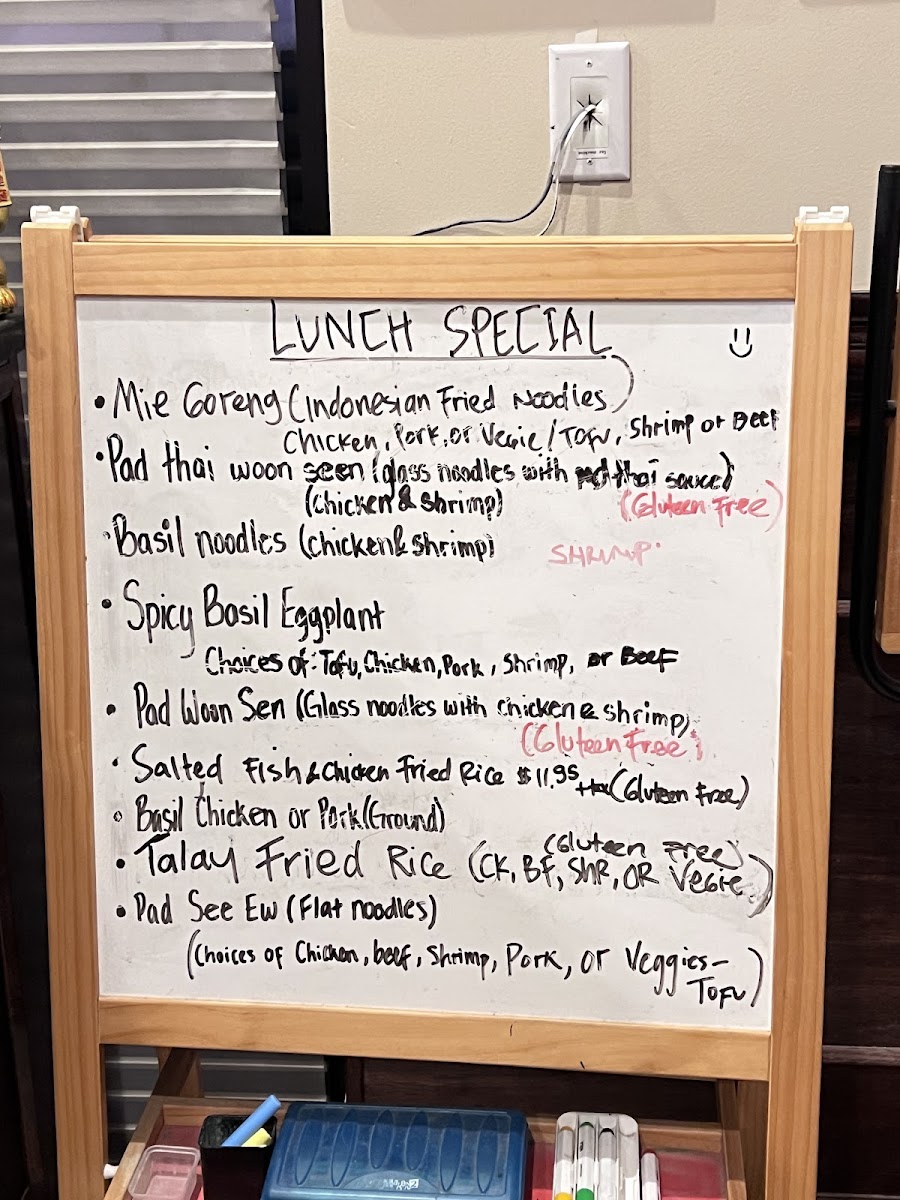 LUNCH SPECIAL
• Mie Goreng (Indonesian Fried Noodles)
Chicken, Pork, or Vegie/Tofu, Shrimp or Beef
• Pad thai woon seen (glass noodles with pad thai sauce)
(chicken & shrimp) (Gluteen Free)
• Basil noodles (chicken & shrimp) SHRIMP
• Spicy Basil Eggplant
Choices of: Tofu, Chicken, Pork, Shrimp, or Beef
• Pad Woon Sen (Glass noodles with chicken & shrimp)
(Gluteen Free)
• Salted Fish & Chicken Fried Rice $11.95 +tax (Gluteen Free)
• Basil Chicken or Pork (Ground)
(Gluteen Free)
• Talay Fried Rice (CK, BF, SHR, OR Vegie)
• Pad See Ew (Flat noodles)
(Choices of Chicken, beef, Shrimp, Pork, or Veggies-
Tofu)